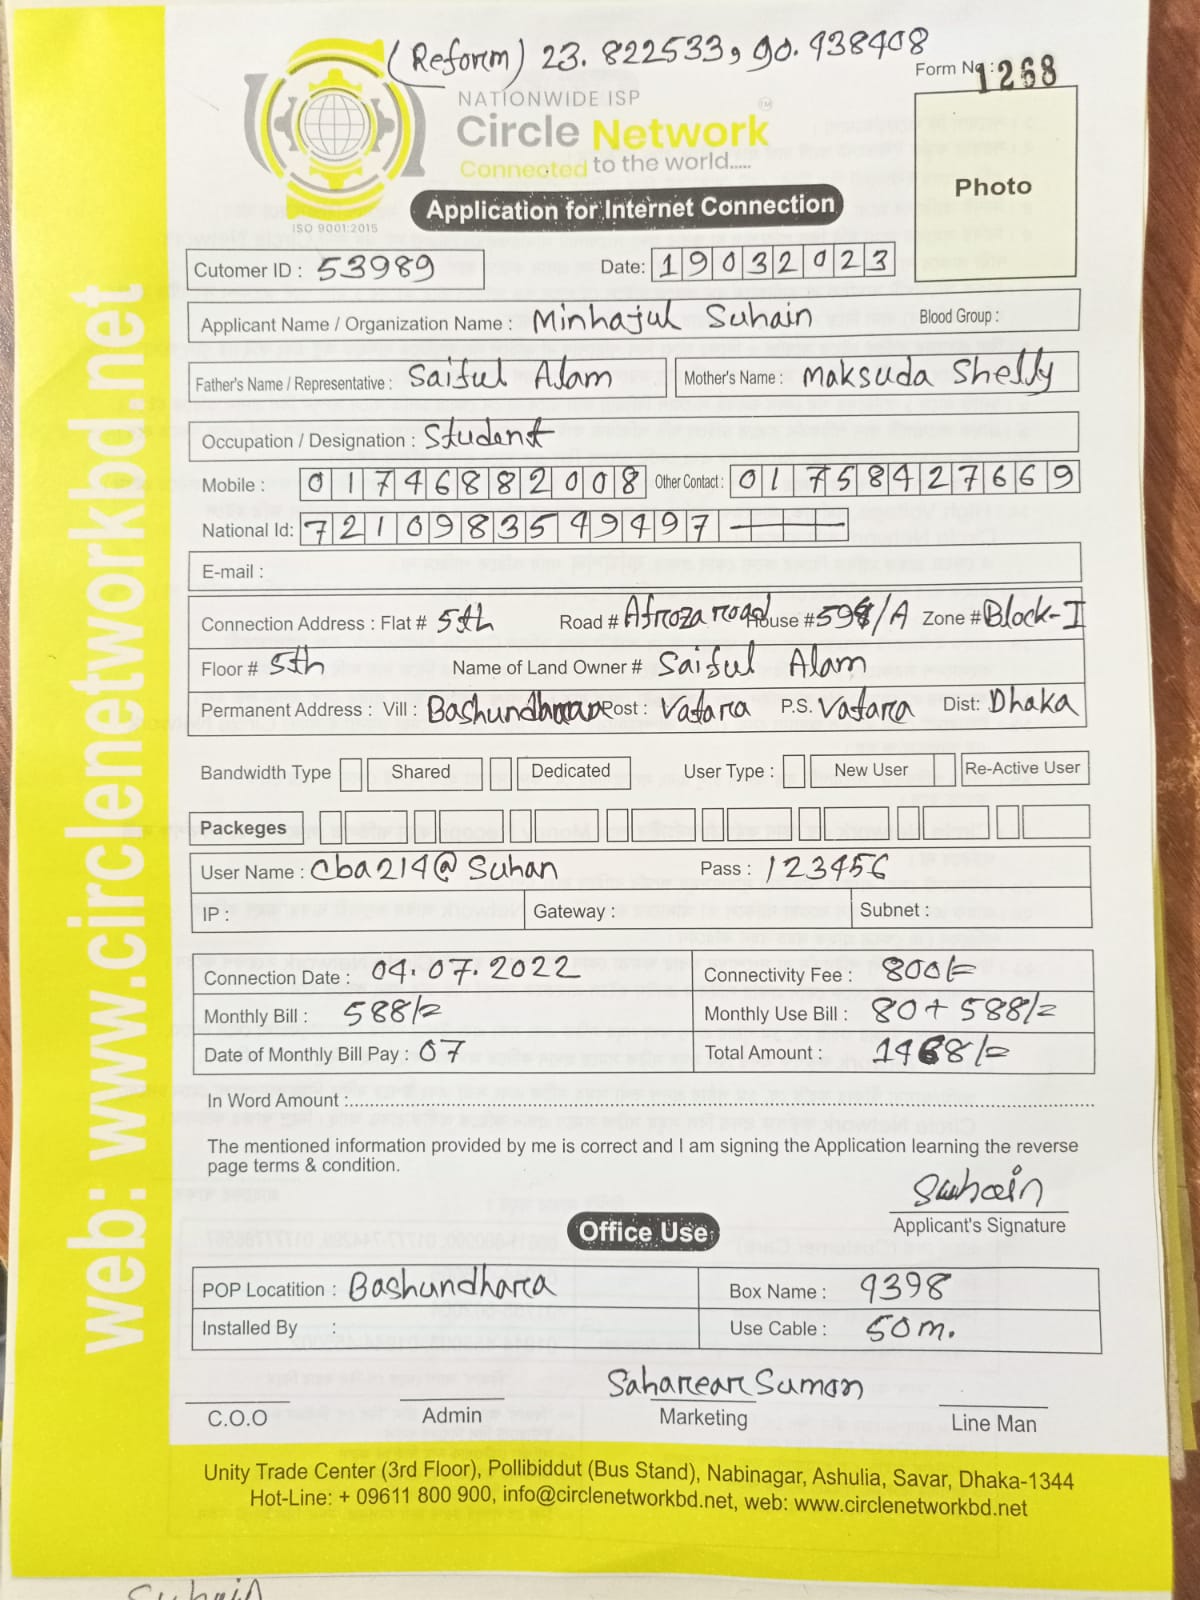 (Reform) 23.822533, 90.438408
Form No : 1268
NATIONWIDE ISP
Circle Network
TM
Connected to the world.....
Photo
ISO 9001:2015
Application for Internet Connection
Cutomer ID : 53989 Date: 19032023
Applicant Name / Organization Name : Minhajul Suhain Blood Group :
Father's Name / Representative : Saiful Alam Mother's Name : Maksuda Shelly
Occupation / Designation : Student
Mobile : 01746882008 Other Contact : 01758427669
National Id: 7210983549497
E-mail :
Connection Address : Flat # 5th Road # Afroza road House # /A Zone # Block-I
Floor # 5th Name of Land Owner # Saiful Alam
Permanent Address : Vill : Bashundhara Post : Vatara P.S. Vatara Dist: Dhaka
Bandwidth Type Shared Dedicated User Type : New User Re-Active User
Packeges
User Name : cba214@Suhan Pass : 123456
IP : Gateway : Subnet :
Connection Date : 04.07.2022 Connectivity Fee : 800/=
Monthly Bill : 588/= Monthly Use Bill : 80+588/=
Date of Monthly Bill Pay : 07 Total Amount : 1468/=
In Word Amount :
The mentioned information provided by me is correct and I am signing the Application learning the reverse
page terms & condition.
Suhain
Applicant's Signature
Office Use
POP Locatition : Bashundhara Box Name : 9398
Installed By : Use Cable : 50m.
Saharear Suman
C.O.O Admin Marketing Line Man
Unity Trade Center (3rd Floor), Pollibiddut (Bus Stand), Nabinagar, Ashulia, Savar, Dhaka-1344
Hot-Line: + 09611 800 900, info@circlenetworkbd.net, web: www.circlenetworkbd.net
web: www.circlenetworkbd.net
Suhain